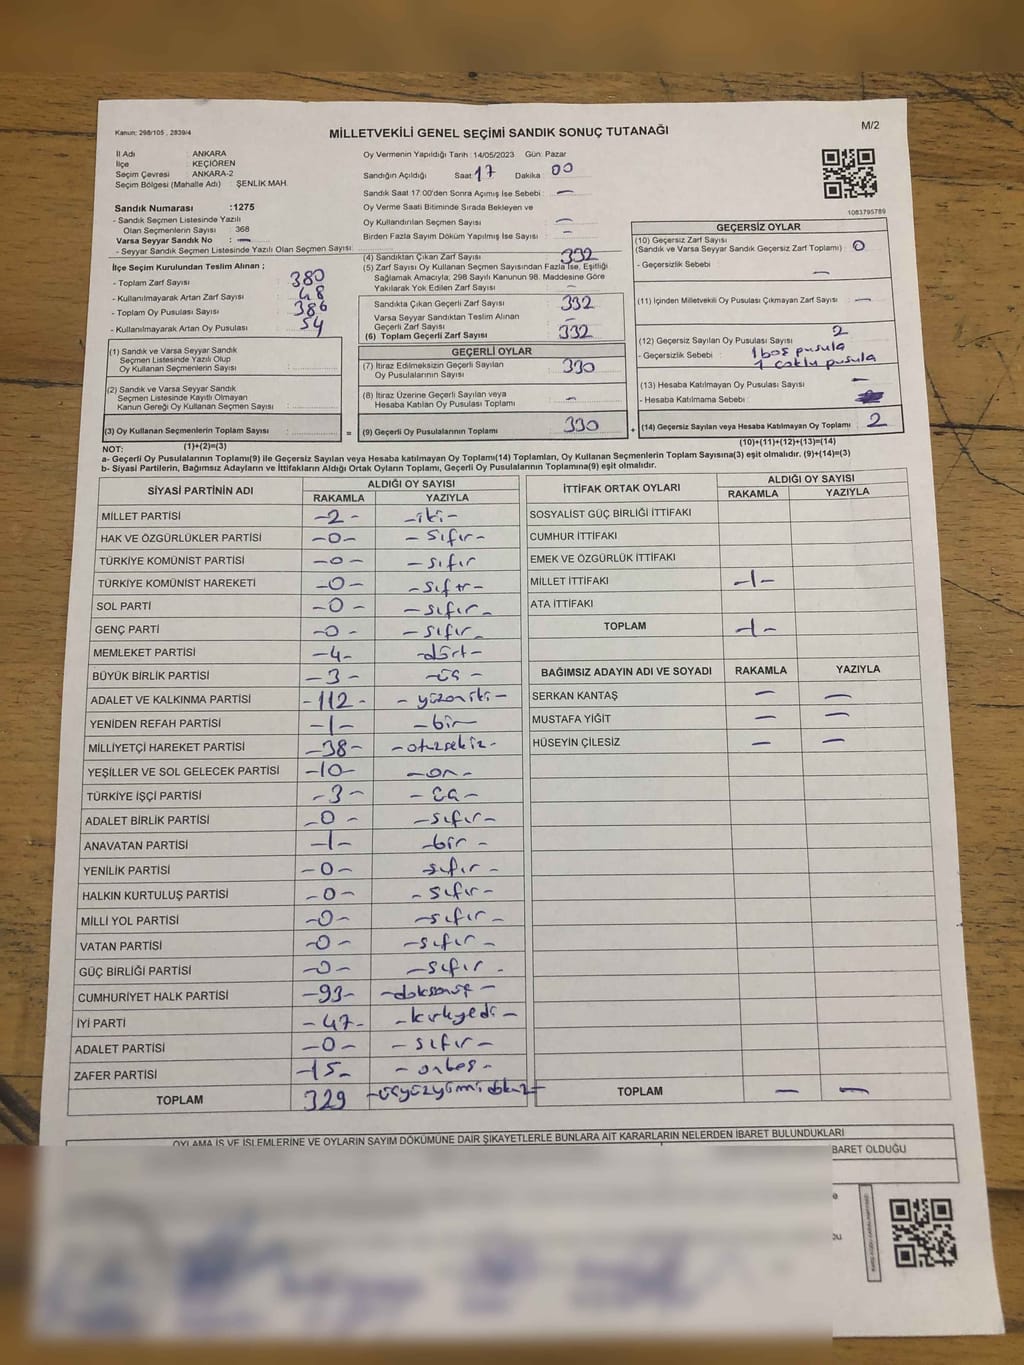 Kanun: 298/105 , 2839/4
MİLLETVEKİLİ GENEL SEÇİMİ SANDIK SONUÇ TUTANAĞI
M/2
İl Adı : ANKARA
İlçe : KEÇİÖREN
Seçim Çevresi : ANKARA-2
Seçim Bölgesi (Mahalle Adı) : ŞENLİK MAH.
Oy Vermenin Yapıldığı Tarih : 14/05/2023 Gün: Pazar
Sandığın Açıldığı Saat: 17 Dakika : 00
Sandık Saat 17:00'den Sonra Açımış İse Sebebi : —
Oy Verme Saati Bitiminde Sırada Bekleyen ve
Oy Kullandırılan Seçmen Sayısı : —
Birden Fazla Sayım Döküm Yapılmış İse Sayısı : —
1083795789
Sandık Numarası :1275
- Sandık Seçmen Listesinde Yazılı
Olan Seçmenlerin Sayısı : 368
Varsa Seyyar Sandık No : —
- Seyyar Sandık Seçmen Listesinde Yazılı Olan Seçmen Sayısı:
İlçe Seçim Kurulundan Teslim Alınan ;
- Toplam Zarf Sayısı : 380
- Kullanılmayarak Artan Zarf Sayısı : 48
- Toplam Oy Pusulası Sayısı : 386
- Kullanılmayarak Artan Oy Pusulası : 54
(1) Sandık ve Varsa Seyyar Sandık
Seçmen Listesinde Yazılı Olup
Oy Kullanan Seçmenlerin Sayısı :
(2) Sandık ve Varsa Seyyar Sandık
Seçmen Listesinde Kayıtlı Olmayan
Kanun Gereği Oy Kullanan Seçmen Sayısı :
(3) Oy Kullanan Seçmenlerin Toplam Sayısı :
(1)+(2)=(3)
(4) Sandıktan Çıkan Zarf Sayısı : 332
(5) Zarf Sayısı Oy Kullanan Seçmen Sayısından Fazla İse, Eşitliği
Sağlamak Amacıyla, 298 Sayılı Kanunun 98. Maddesine Göre
Yakılarak Yok Edilen Zarf Sayısı : —
Sandıkta Çıkan Geçerli Zarf Sayısı : 332
Varsa Seyyar Sandıktan Teslim Alınan
Geçerli Zarf Sayısı : —
(6) Toplam Geçerli Zarf Sayısı : 332
GEÇERLİ OYLAR
(7) İtiraz Edilmeksizin Geçerli Sayılan
Oy Pusulalarının Sayısı : 330
(8) İtiraz Üzerine Geçerli Sayılan veya
Hesaba Katılan Oy Pusulası Toplamı : —
= (9) Geçerli Oy Pusulalarının Toplamı : 330 +
GEÇERSİZ OYLAR
(10) Geçersiz Zarf Sayısı
(Sandık ve Varsa Seyyar Sandık Geçersiz Zarf Toplamı) : 0
- Geçersizlik Sebebi : —
(11) İçinden Milletvekili Oy Pusulası Çıkmayan Zarf Sayısı : —
(12) Geçersiz Sayılan Oy Pusulası Sayısı : 2
- Geçersizlik Sebebi : 1 boş pusula
1 çoklu pusula
(13) Hesaba Katılmayan Oy Pusulası Sayısı : —
- Hesaba Katılmama Sebebi :
(14) Geçersiz Sayılan veya Hesaba Katılmayan Oy Toplamı : 2
(10)+(11)+(12)+(13)=(14)
NOT:
a- Geçerli Oy Pusulalarının Toplamı(9) ile Geçersiz Sayılan veya Hesaba Katılmayan Oy Toplamı(14) Toplamları, Oy Kullanan Seçmenlerin Toplam Sayısına(3) eşit olmalıdır. (9)+(14)=(3)
b- Siyasi Partilerin, Bağımsız Adayların ve İttifakların Aldığı Ortak Oyların Toplamı, Geçerli Oy Pusulalarının Toplamına(9) eşit olmalıdır.
SİYASİ PARTİNİN ADI
ALDIĞI OY SAYISI
RAKAMLA YAZIYLA
MİLLET PARTİSİ -2- -iki-
HAK VE ÖZGÜRLÜKLER PARTİSİ -0- -sıfır-
TÜRKİYE KOMÜNİST PARTİSİ -0- -sıfır
TÜRKİYE KOMÜNİST HAREKETİ -0- -sıfır-
SOL PARTİ -0- -sıfır-
GENÇ PARTİ -0- -sıfır-
MEMLEKET PARTİSİ -4- -dört-
BÜYÜK BİRLİK PARTİSİ -3- -üç-
ADALET VE KALKINMA PARTİSİ -112- -yüzoniki-
YENİDEN REFAH PARTİSİ -1- -bir-
MİLLİYETÇİ HAREKET PARTİSİ -38- -otuzsekiz-
YEŞİLLER VE SOL GELECEK PARTİSİ -10- -on-
TÜRKİYE İŞÇİ PARTİSİ -3- -üç-
ADALET BİRLİK PARTİSİ -0- -sıfır-
ANAVATAN PARTİSİ -1- -bir-
YENİLİK PARTİSİ -0- -sıfır-
HALKIN KURTULUŞ PARTİSİ -0- -sıfır-
MİLLİ YOL PARTİSİ -0- -sıfır-
VATAN PARTİSİ -0- -sıfır-
GÜÇ BİRLİĞİ PARTİSİ -0- -sıfır-
CUMHURİYET HALK PARTİSİ -93- -doksanüç-
İYİ PARTİ -47- -kırkyedi-
ADALET PARTİSİ -0- -sıfır-
ZAFER PARTİSİ -15- -onbeş-
TOPLAM 329 -üçyüzyirmidokuz-
İTTİFAK ORTAK OYLARI
ALDIĞI OY SAYISI
RAKAMLA YAZIYLA
SOSYALİST GÜÇ BİRLİĞİ İTTİFAKI
CUMHUR İTTİFAKI
EMEK VE ÖZGÜRLÜK İTTİFAKI
MİLLET İTTİFAKI -1-
ATA İTTİFAKI
TOPLAM -1-
BAĞIMSIZ ADAYIN ADI VE SOYADI RAKAMLA YAZIYLA
SERKAN KANTAŞ — —
MUSTAFA YİĞİT — —
HÜSEYİN ÇİLESİZ — —
TOPLAM — —
OYLAMA İŞ VE İŞLEMLERİNE VE OYLARIN SAYIM DÖKÜMÜNE DAİR ŞİKAYETLERLE BUNLARA AİT KARARLARIN NELERDEN İBARET BULUNDUKLARI
BARET OLDUĞU